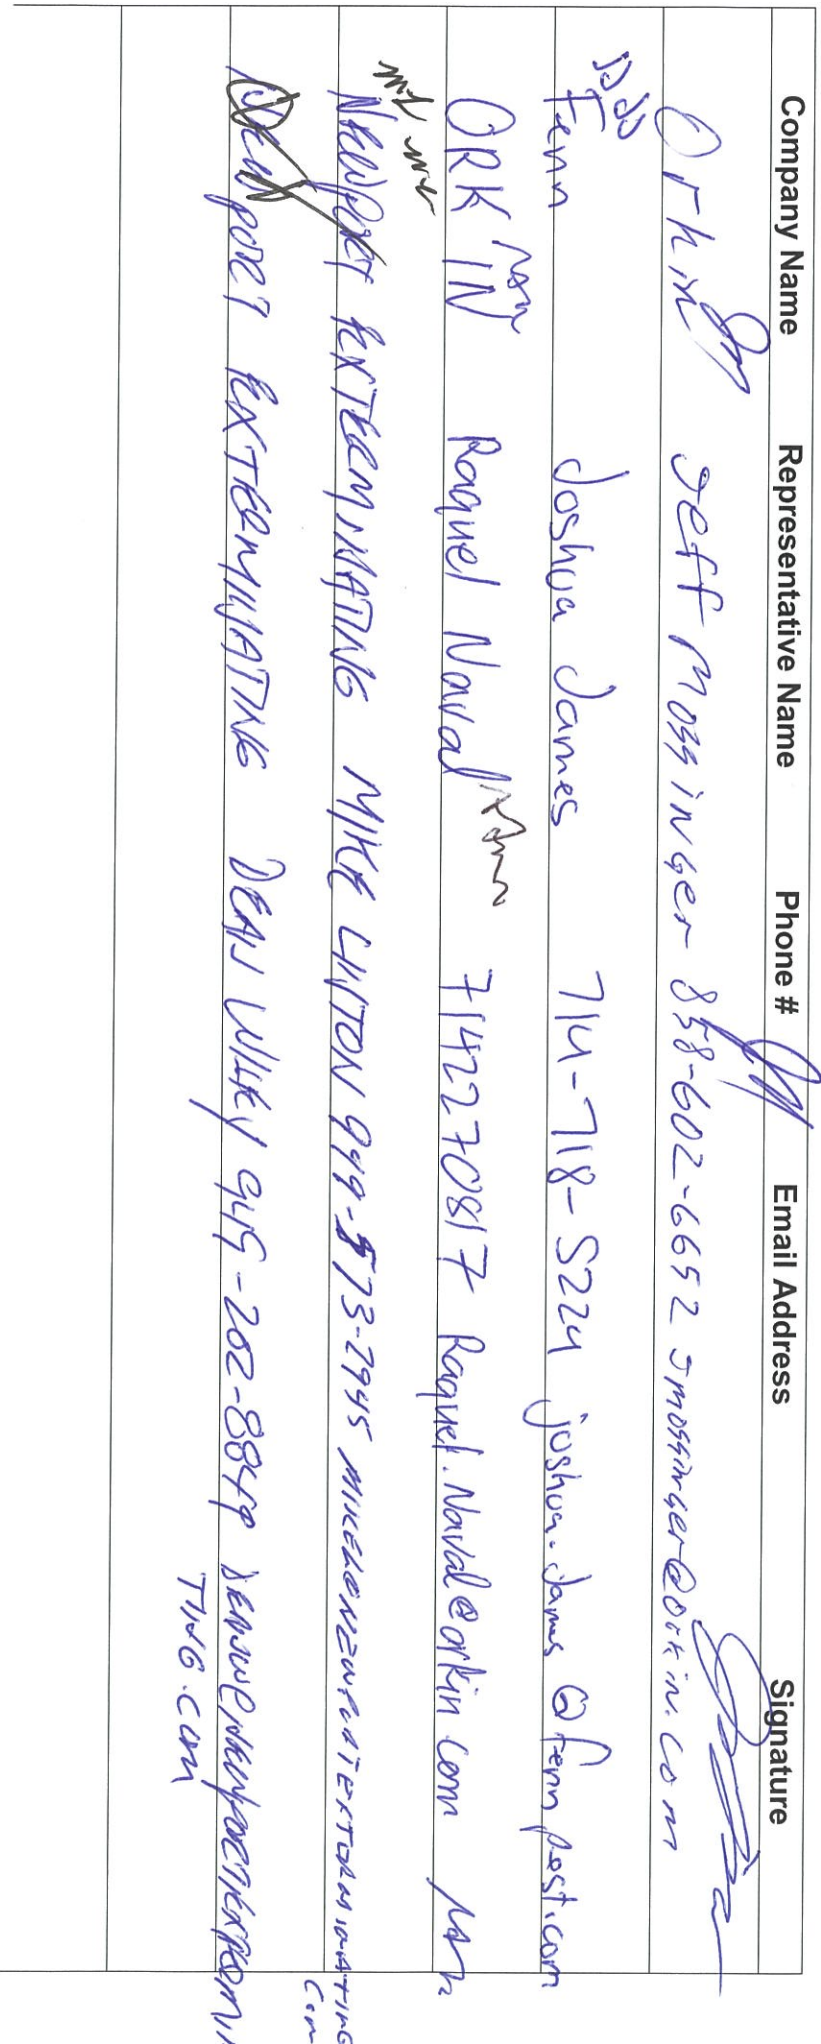 Company Name Representative Name Phone # Email Address Signature
Orkin Jeff Mossinger 858-602-6652 jmossinger@orkin.com
Fenn Joshua James 714-718-5224 joshua.james@fennpest.com
ORKIN Raquel Naval 7142270817 Raquel.Naval@orkin.com
NEWPORT EXTERMINATING MIKE LINTON 949-573-2945 MIKEL@NEWPORTEXTERMINATING
.com
NEWPORT EXTERMINATING DEAN WILEY 949-202-8849
TING.COM